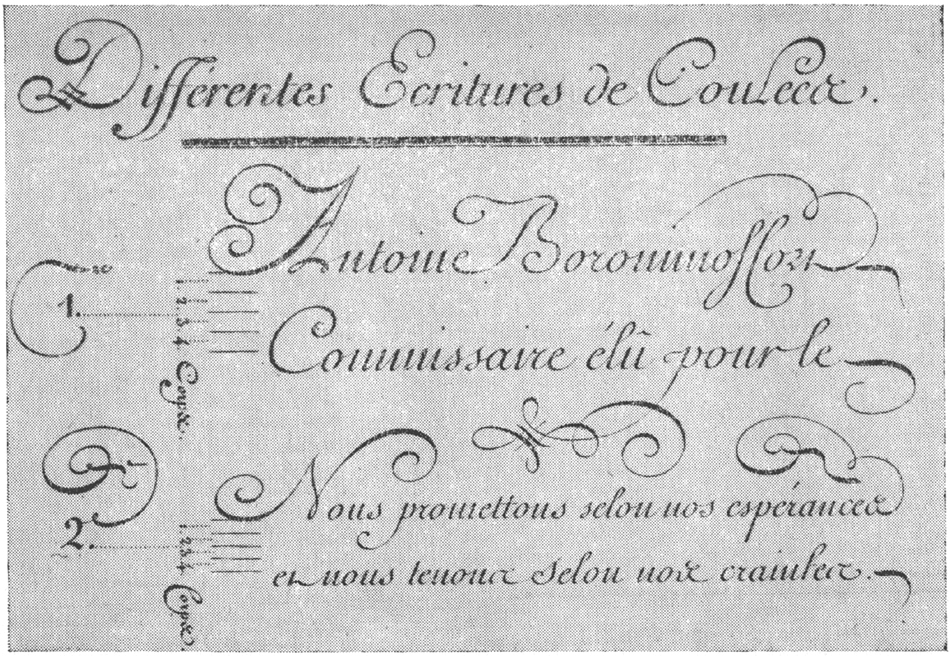 Différentes Ecritures de Coulées.
Antoine Borominosson
1.
1. 2. 3. 4. Corps.
Commissaire élû pour le
Nous promettons selon nos espérances
2.
1. 2. 3. 4. Corps.
et nous tenons selon nos craintes.